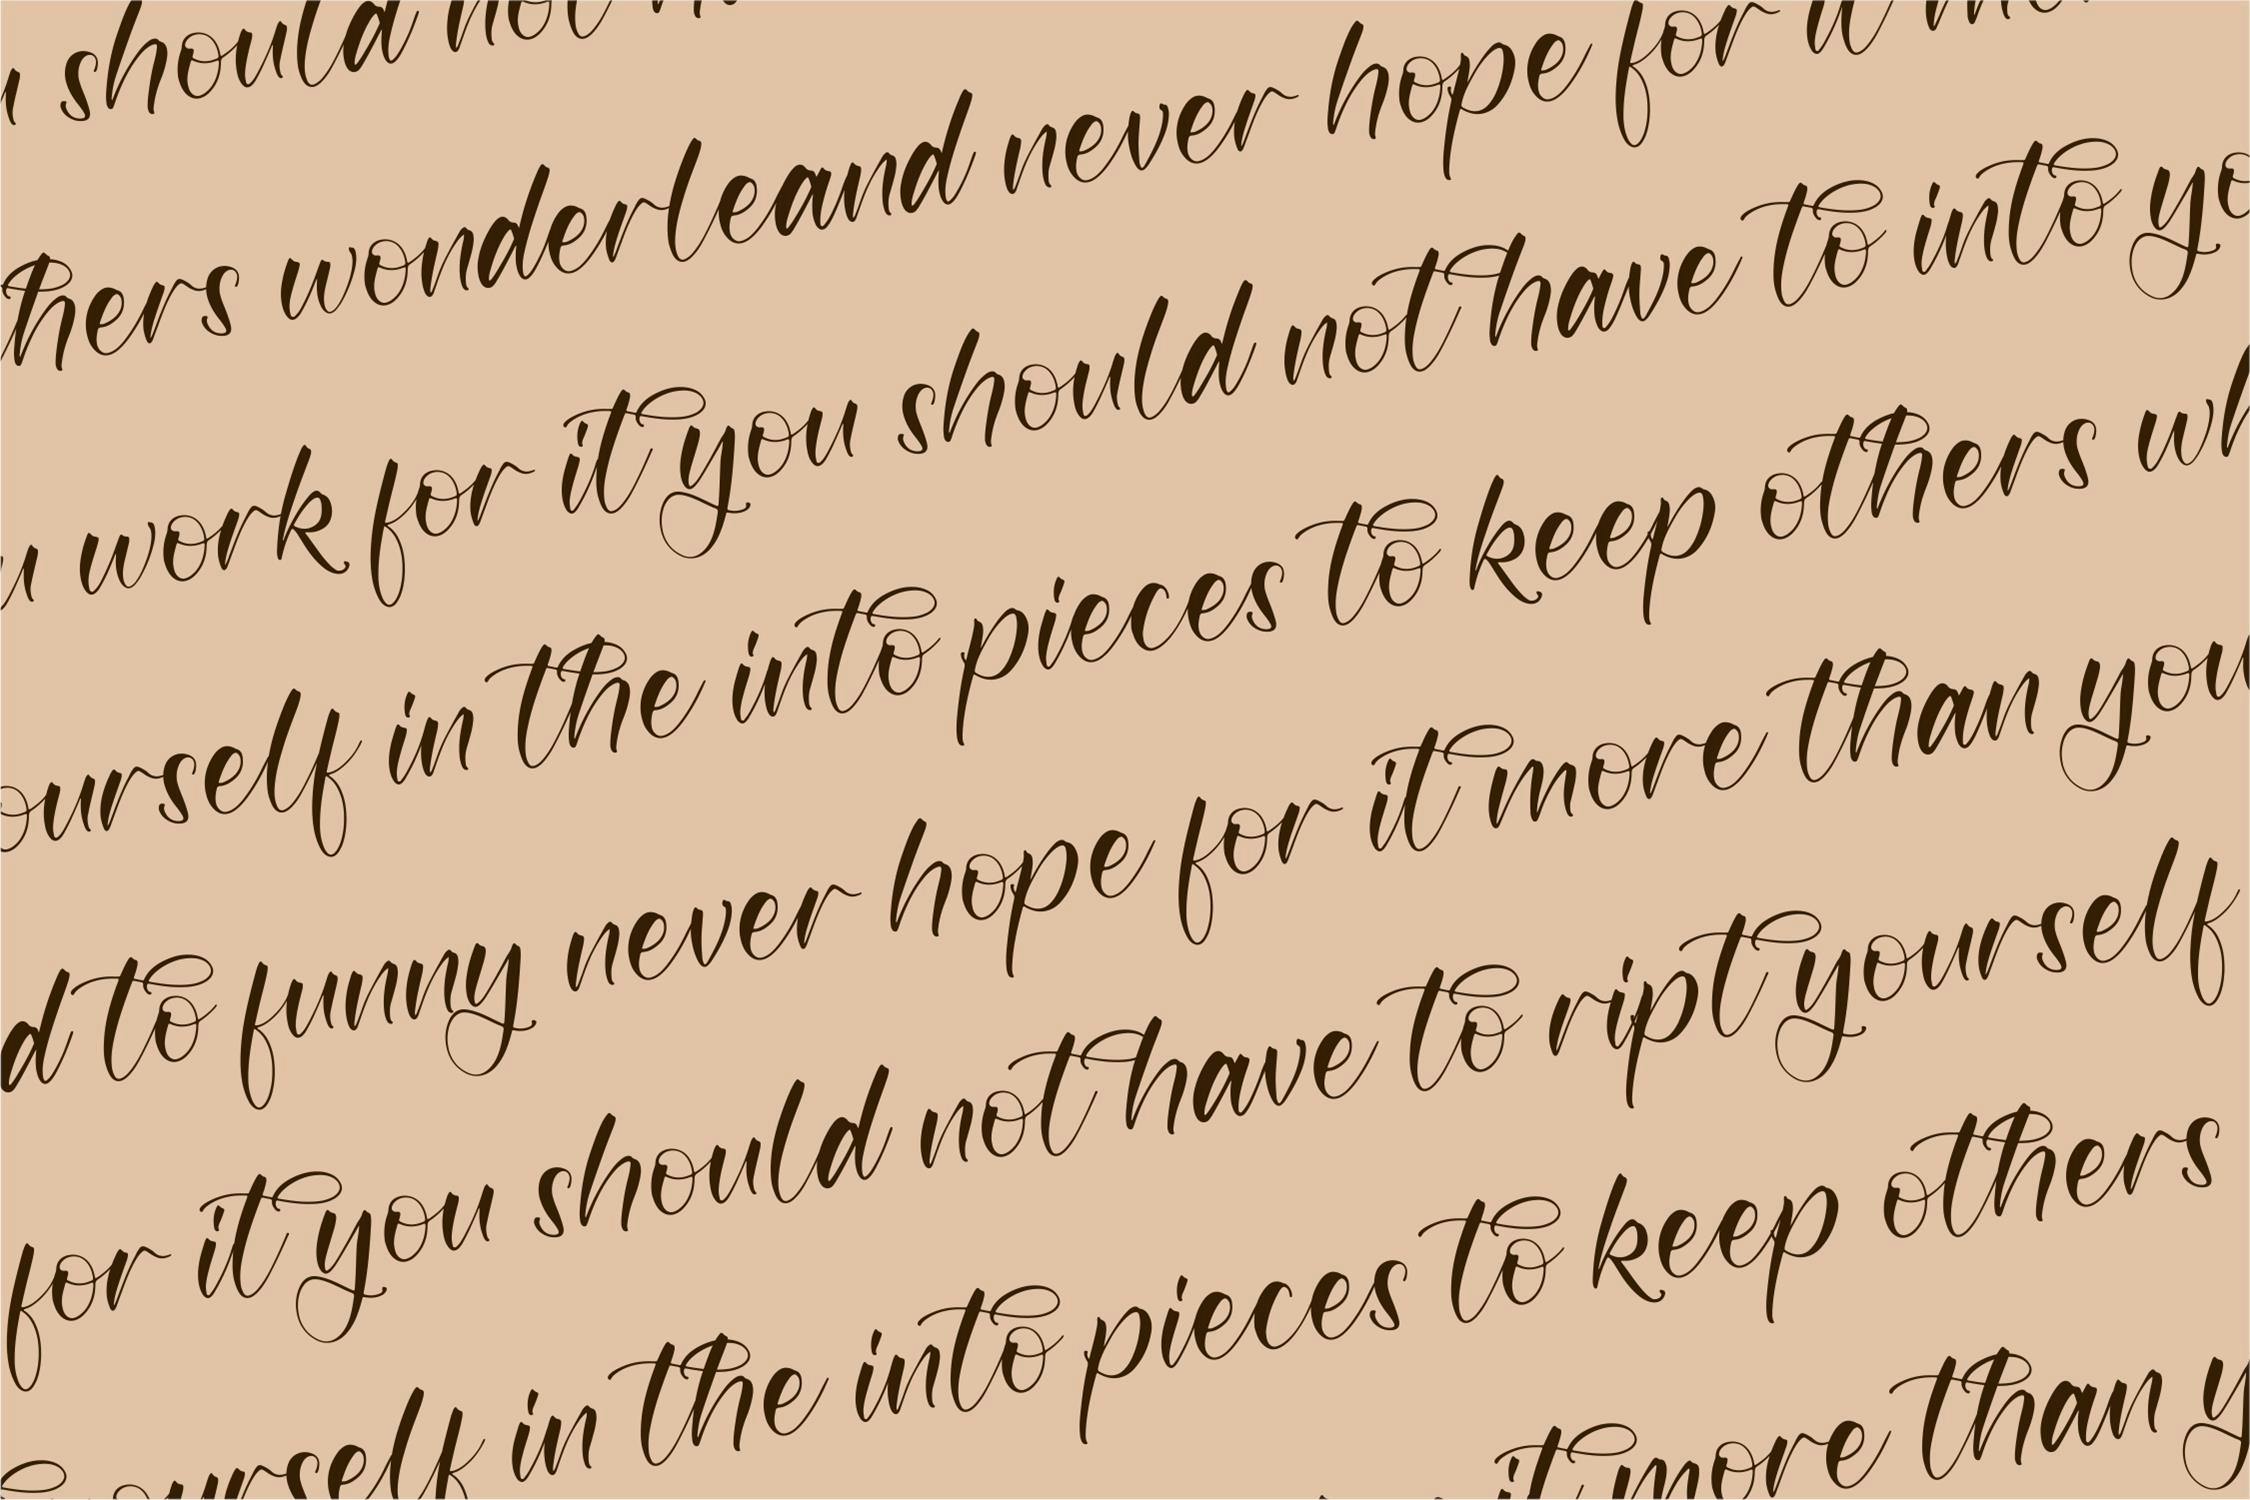 should not
others wonderleand never hope for it
work for it you should not have to into
yourself in the into pieces to keep others
to funny never hope for it more than you
for it you should not have to ript yourself
yourself in the into pieces to keep others
it more than